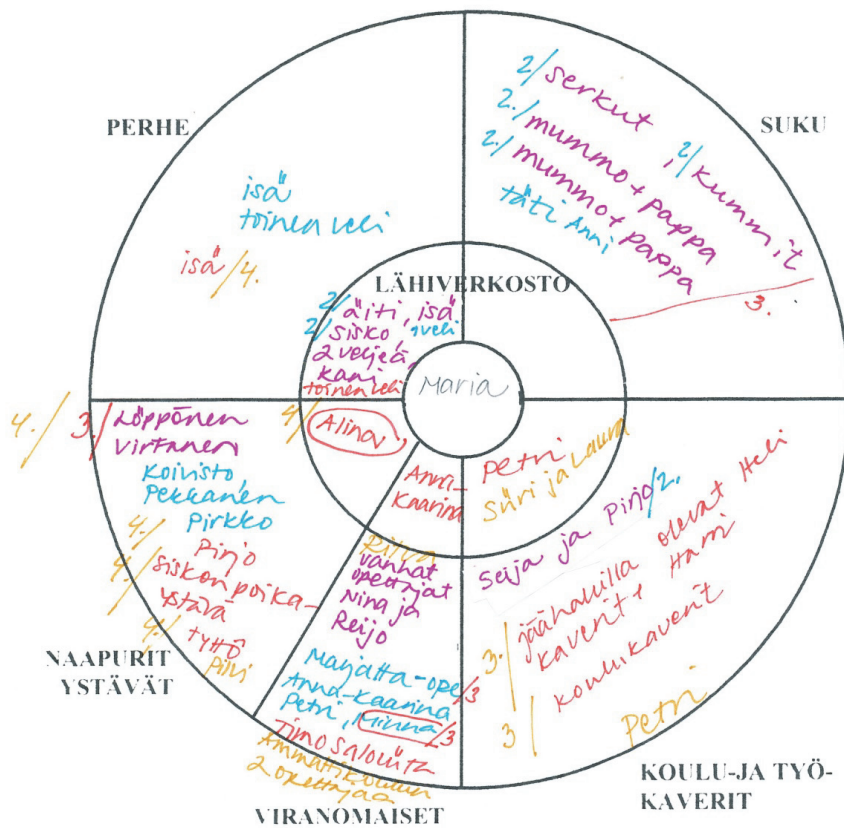 PERHE
isä
toinen veli
isä /4.
SUKU
2/ serkut, 2/ kummit
2./ mummo + pappa
2./ mummo + pappa
täti Anni
3.
LÄHIVERKOSTO
2/ äiti, isä
2/ sisko, 1veli
2 veljeä,
kani
toinen veli
Maria
4/ Alina,
Anni-
Kaarina
Petri
Siiri ja Laura
4./ 3./ Löppönen
Virtanen
Koivisto,
Pekkanen
Pirkko
4./ Pirjo
4./ siskon poika-
ystävä
4./ tyttö
Piivi
NAAPURIT
YSTÄVÄT
Ritva
vanhat
opettajat
Nina ja
Reijo
Marjatta-ope /3
Anna-Kaarina
Petri, Minna /3
Timo
Ammattikoulun
2 opettajaa
VIRANOMAISET
Seija ja Pirjo /2.
3./ jäähallilla olevat Heli
kaverit + Harri
3/ koulukaverit
Petri
KOULU-JA TYÖ-
KAVERIT